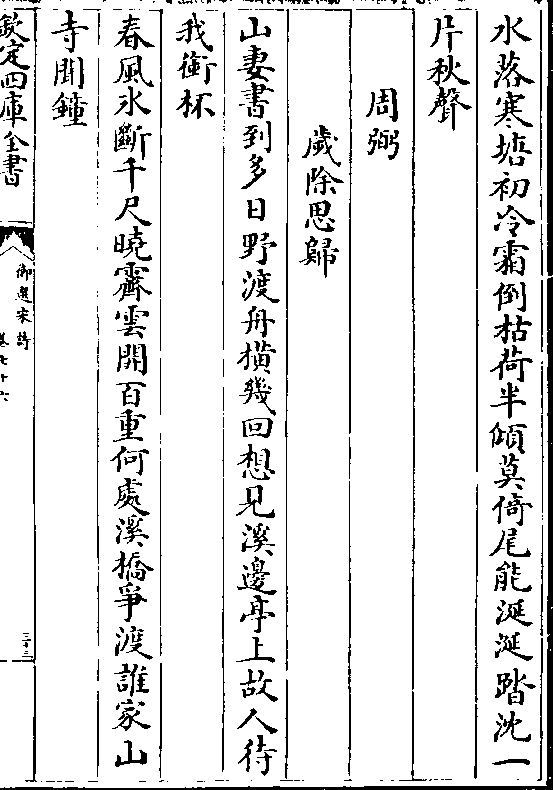 水落寒塘初冷霜倒枯荷半傾莫倚尾能涎涎踏沈一
片秋聲
周弼
歲除思歸
山妻書到多日野渡舟橫幾回想見溪邊亭上故人待
我銜杯
春風氷斷千尺曉霽雲開百重何處溪橋爭渡誰家山
寺聞鐘
欽定四庫全書
御選宋詩
卷七十六
三十三